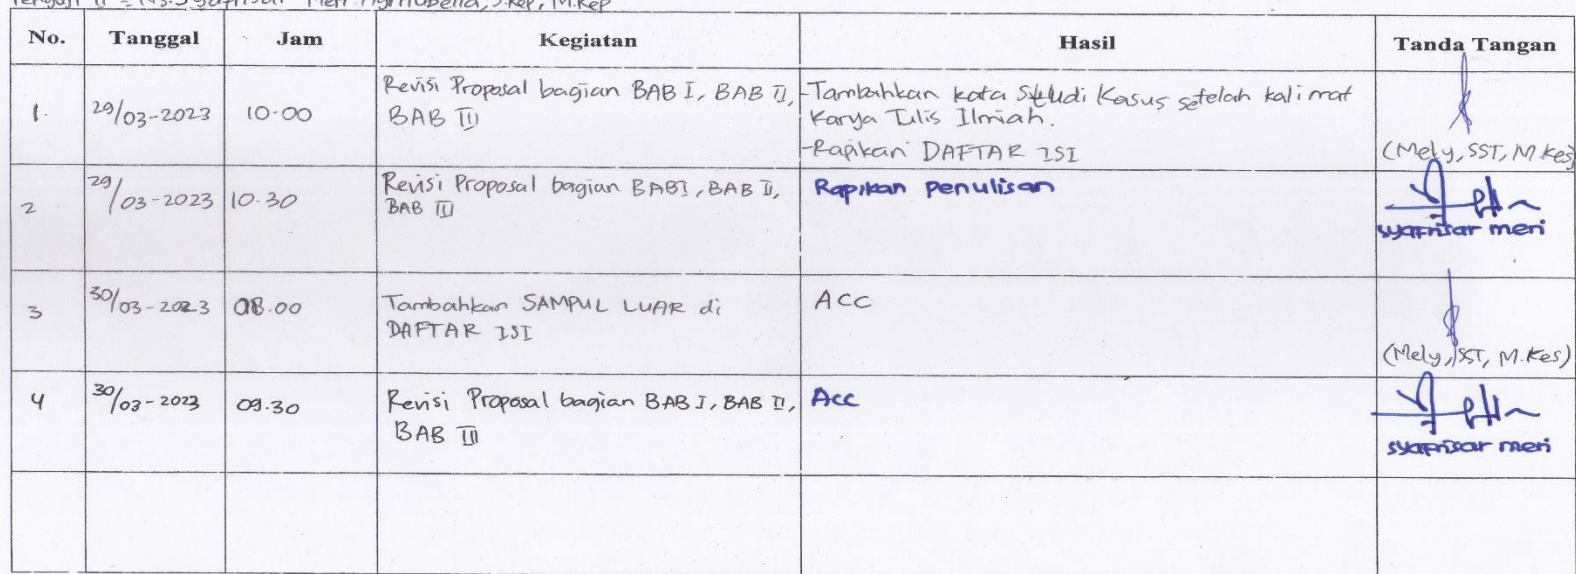 No. Tanggal Jam Kegiatan Hasil Tanda Tangan
1. 29/03-2023 10.00 Revisi Proposal bagian BAB I, BAB II, -Tambahkan kata Studi Kasus setelah kalimat
BAB III Karya Tulis Ilmiah.
-Rapikan DAFTAR ISI (Mely, SST, M.Kes)
2 29/03-2023 10.30 Revisi Proposal bagian BAB I, BAB II, Rapikan penulisan
BAB III
syafrisar meri
3 30/03-2023 08.00 Tambahkan SAMPUL LUAR di ACC
DAFTAR ISI
(Mely, SST, M.Kes)
4 30/03-2023 09.30 Revisi Proposal bagian BAB I, BAB II, Acc
BAB III
syafrisar meri